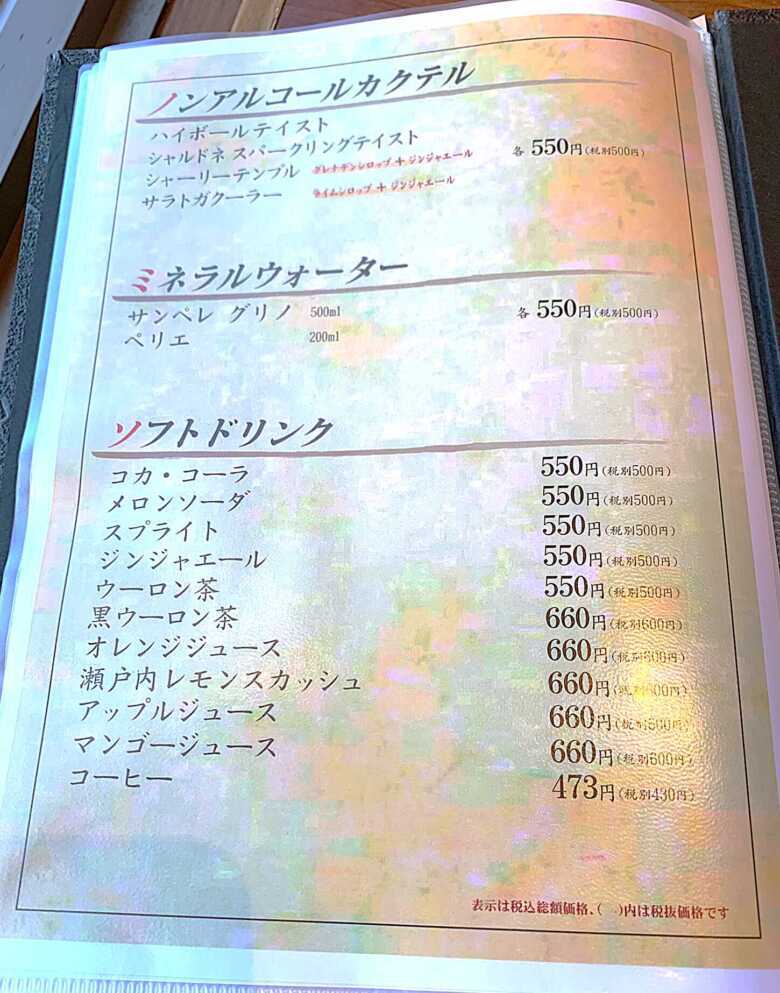 ノンアルコールカクテル
ハイボールテイスト
シャルドネ スパークリングテイスト 各 550円(税別500円)
シャーリーテンプル グレナデンシロップ + ジンジャエール
サラトガクーラー ライムシロップ + ジンジャエール
ミネラルウォーター
サンペレ グリノ 500ml 各 550円(税別500円)
ペリエ 200ml
ソフトドリンク
コカ・コーラ 550円(税別500円)
メロンソーダ 550円(税別500円)
スプライト 550円(税別500円)
ジンジャエール 550円(税別500円)
ウーロン茶 550円(税別500円)
黒ウーロン茶 660円(税別600円)
オレンジジュース 660円(税別600円)
瀬戸内レモンスカッシュ 660円(税別600円)
アップルジュース 660円(税別600円)
マンゴージュース 660円(税別600円)
コーヒー 473円(税別430円)
表示は税込総額価格、( )内は税抜価格です